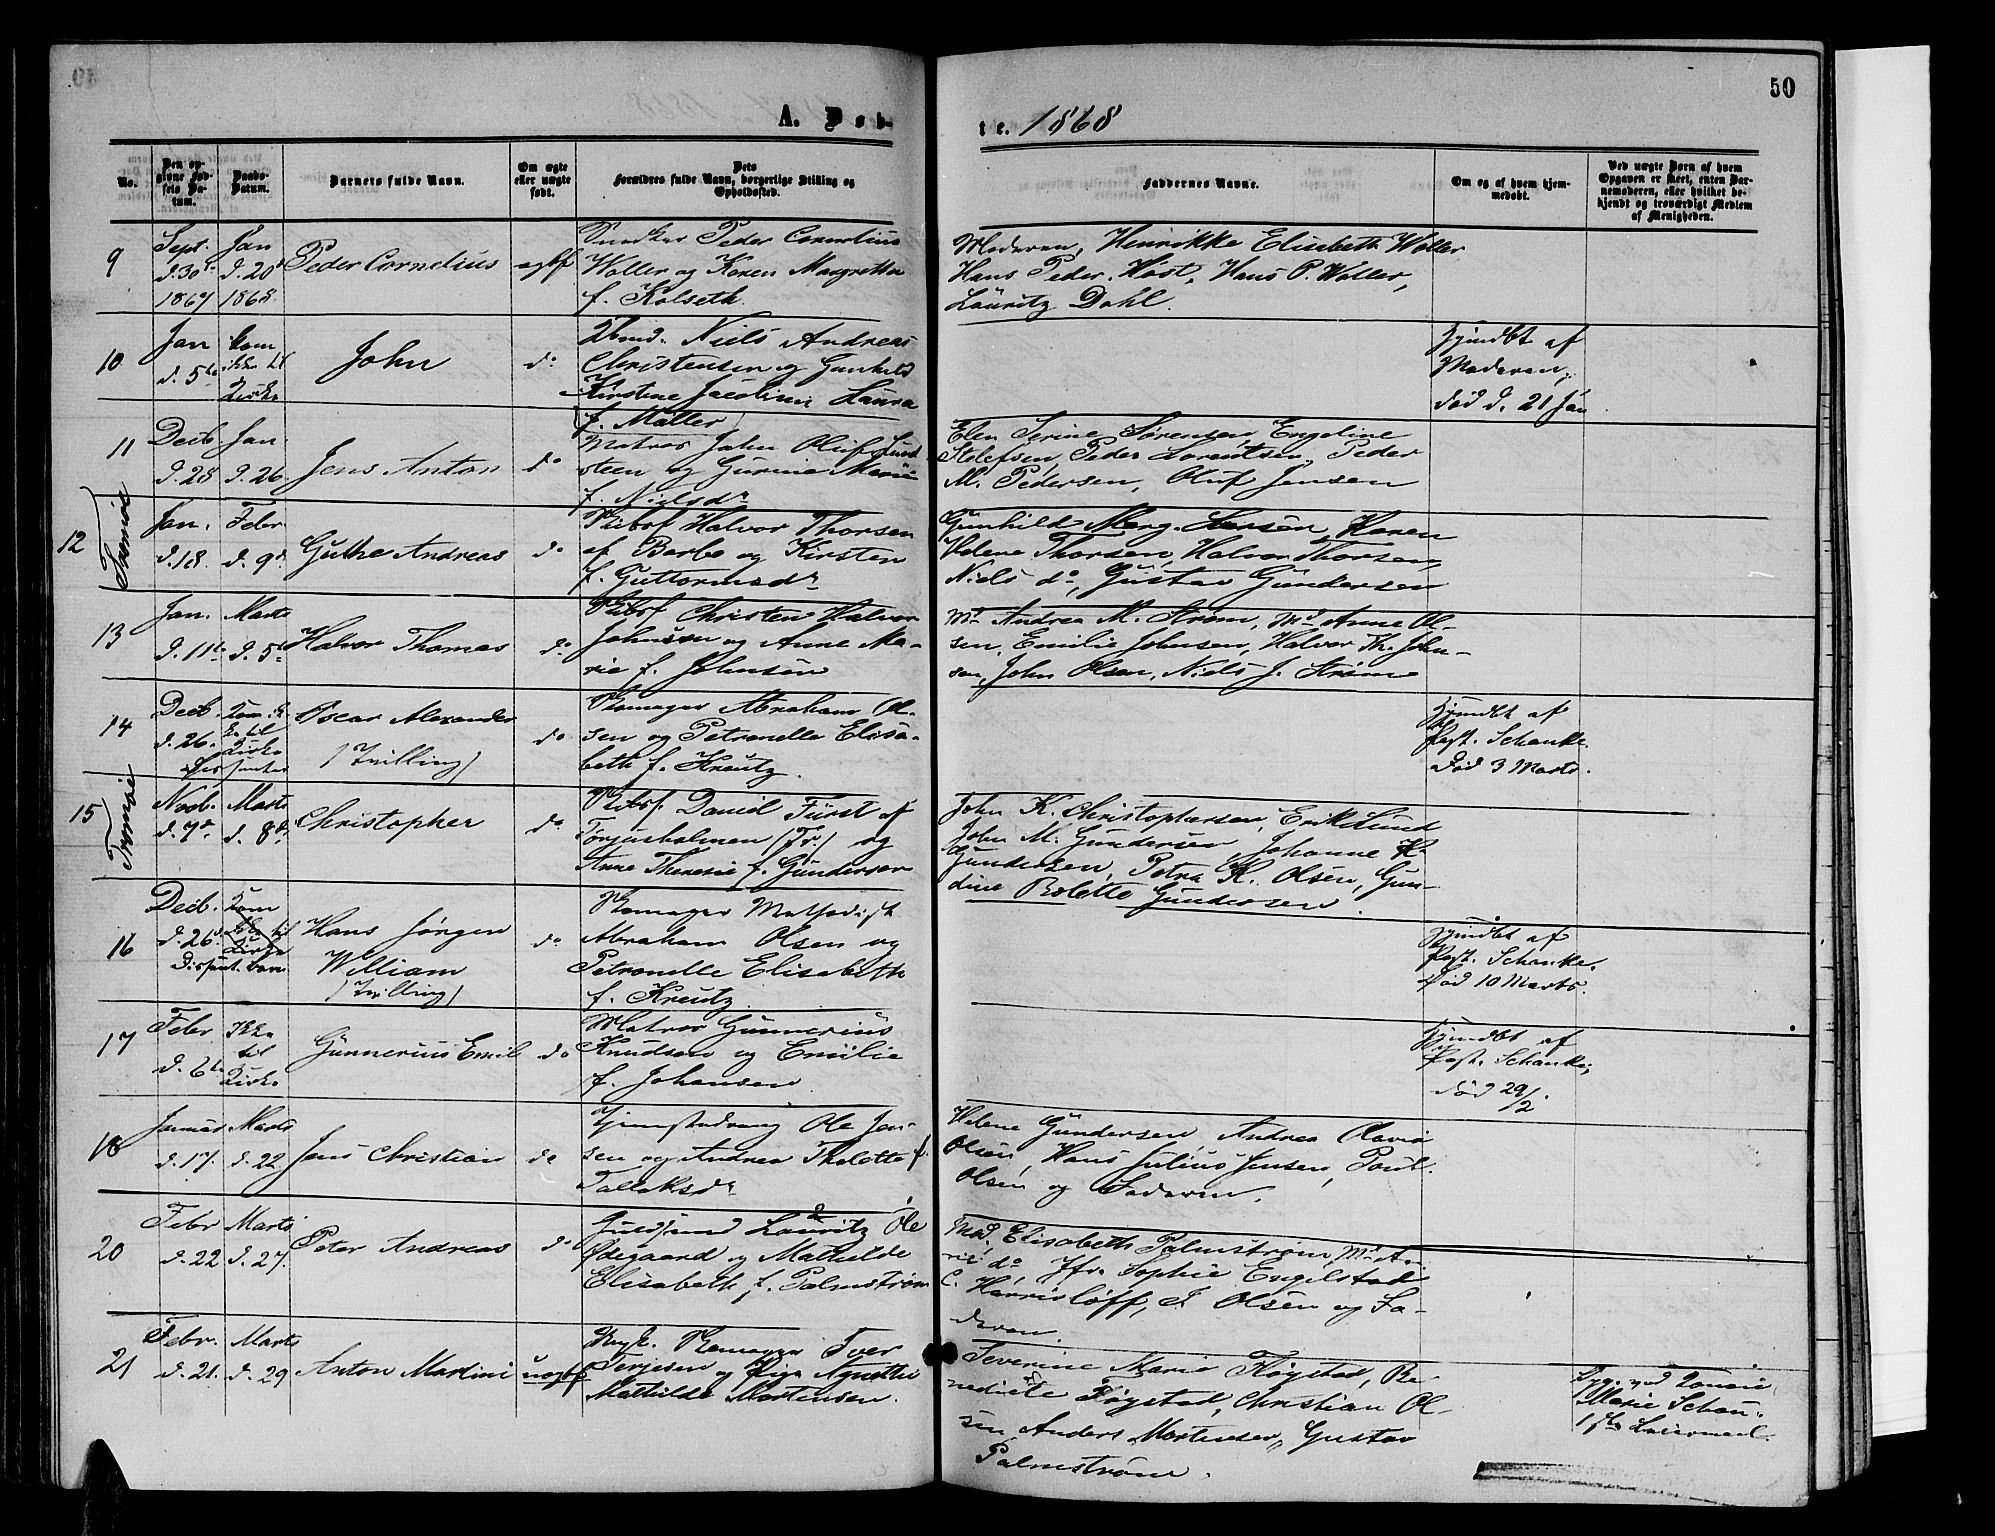 50
A. Døb-
te. 1868
No.
Den op-
givne Fød-
sels Da-
tum.
Daabs-
Datum.
Barnets fulde Navn.
Om ægte
eller uægte
født.
Dets
Forældres fulde Navn, borgerlige Stilling og
Opholdssted.
Faddernes Navne.
Om og af hvem hjem-
medøbt.
Ved uægte Børn af hvem
Opgaven er skeet, enten Bar-
nemoderen, eller hvilket be-
kjendt og troværdigt Medlem
af Menigheden.
9
Sept.
d. 30te
1867
Jan
d. 20de
1868
Peder Cornelius
ægtf
Peder Cornelius
Woller og Karen Margrethe
f. Kolseth.
Moderen, Henrikke Elisabeth Woller
Hans Peder Høst, Hans P. Woller,
Lauritz Dahl.
10
Jan
d. 5te
Kom
ikke til
Kirke
John
do
Niels Andreas
Christensen og Gunhild
Kirstine Jacobine Laura
f. Møller
Hjemdbt af
Moderen,
død d. 21 Jan
11
Decb
d. 28
Jan.
d. 26.
Jens Anton
do
Matros John Oluf Lund-
steen og Gurine Marie
f. Nielsdr
Elen Serine Sørensen, Engeline
Stolefsen, Peder Lorentsen, Peder
M. Pedersen, Oluf Jensen
12
Tromøe
Jan.
d. 18.
Febr
d. 9de
Guthe Andreas
do
Skibsf Halvor Thorsen
af Barbo og Kirsten
f. Guttormsdr
Gunhild Marg. Larsen, Karen
Helene Thorsen, Halvor Thorsen,
Niels do, Gustav Gundersen
13
Jan.
d. 11te
Marts
d. 5te
Halvor Thomas
do
Skibsf Christen Halvor
Johnsen og Anne Ma-
rie f. Johnsen
Md Andrea M. Strøm, Md Anne Ol-
sen, Emilie Johnsen, Halvor Th. John-
sen, John Olsen, Niels J. Strøm
14
Decb.
d. 26.
Kom ik
ke til
Kirke
Dissenter
Oscar Alexander
(Tvilling)
do
Skomager Abraham Ol-
sen og Petronelle Elisa-
beth f. Kreutz.
Hjemdbt af
Past. Schanke.
Død 3 Marts.
15
Tromøe
Novb.
d. 7de
Marts
d. 8de
Christopher
do
Skibsf. David Fürst af
Torjusholmen (Tr.) og
Anne Theresie f. Gundersen
John K. Christophersen, Erik Lund
John M. Gundersen, Johanne K
Gundersen, Petra K. Olsen, Gun-
dine Bolette Gundersen.
16
Decb.
d. 26de
Kom
ikke til
Kirke
Dissent. barn
Hans Jørgen
William
(Tvilling)
do
Skomager Methodist
Abraham Olsen og
Petronelle Elisabeth
f. Kreutz.
Hjemdbt af
Past. Schanke.
Død 10 Marts.
17
Febr
d. 6te
Ikke
til
Kirke
Gunnerius Emil
do
Matros Gunnerius
Knudsen og Emilie
f. Johansen
Hjemdbt af
Past. Schanke;
død 29/2.
18
Januar
d. 17.
Marts
d. 22
Jens Christian
do
Tjenestedreng Ole Jen-
sen og Andrea Thalette f.
Tallaksdr
Helene Gundersen, Andrea Olavia
Olsen, Hans Julius Jensen, Poul
Olsen og Faderen.
20
Febr
d. 22
Marts
d. 27.
Peter Andreas
do
Guldsmed Lauritz Ole
Ødegaard og Mathilde
Elisabeth f. Palmstrøm
Mad. Elisabeth Palmstrøm, Md A-
rie do, Jfr. Sophie Engelstad
C. Harrisløff, J. Olsen og Fa-
deren.
21
Febr.
d. 21.
Marts
d. 29
Anton Martini
uægtf
Ungk. Skomager Iver
Terjesen og Pige Agnethe
Mathilde Mortensen.
Severine Marie Fløystad, Be-
nedicte Fløystad, Christian Ol-
sen, Anders Mortensen, Gustav
Palmstrøm.
Marie Schan-
1ste Leiermaal.